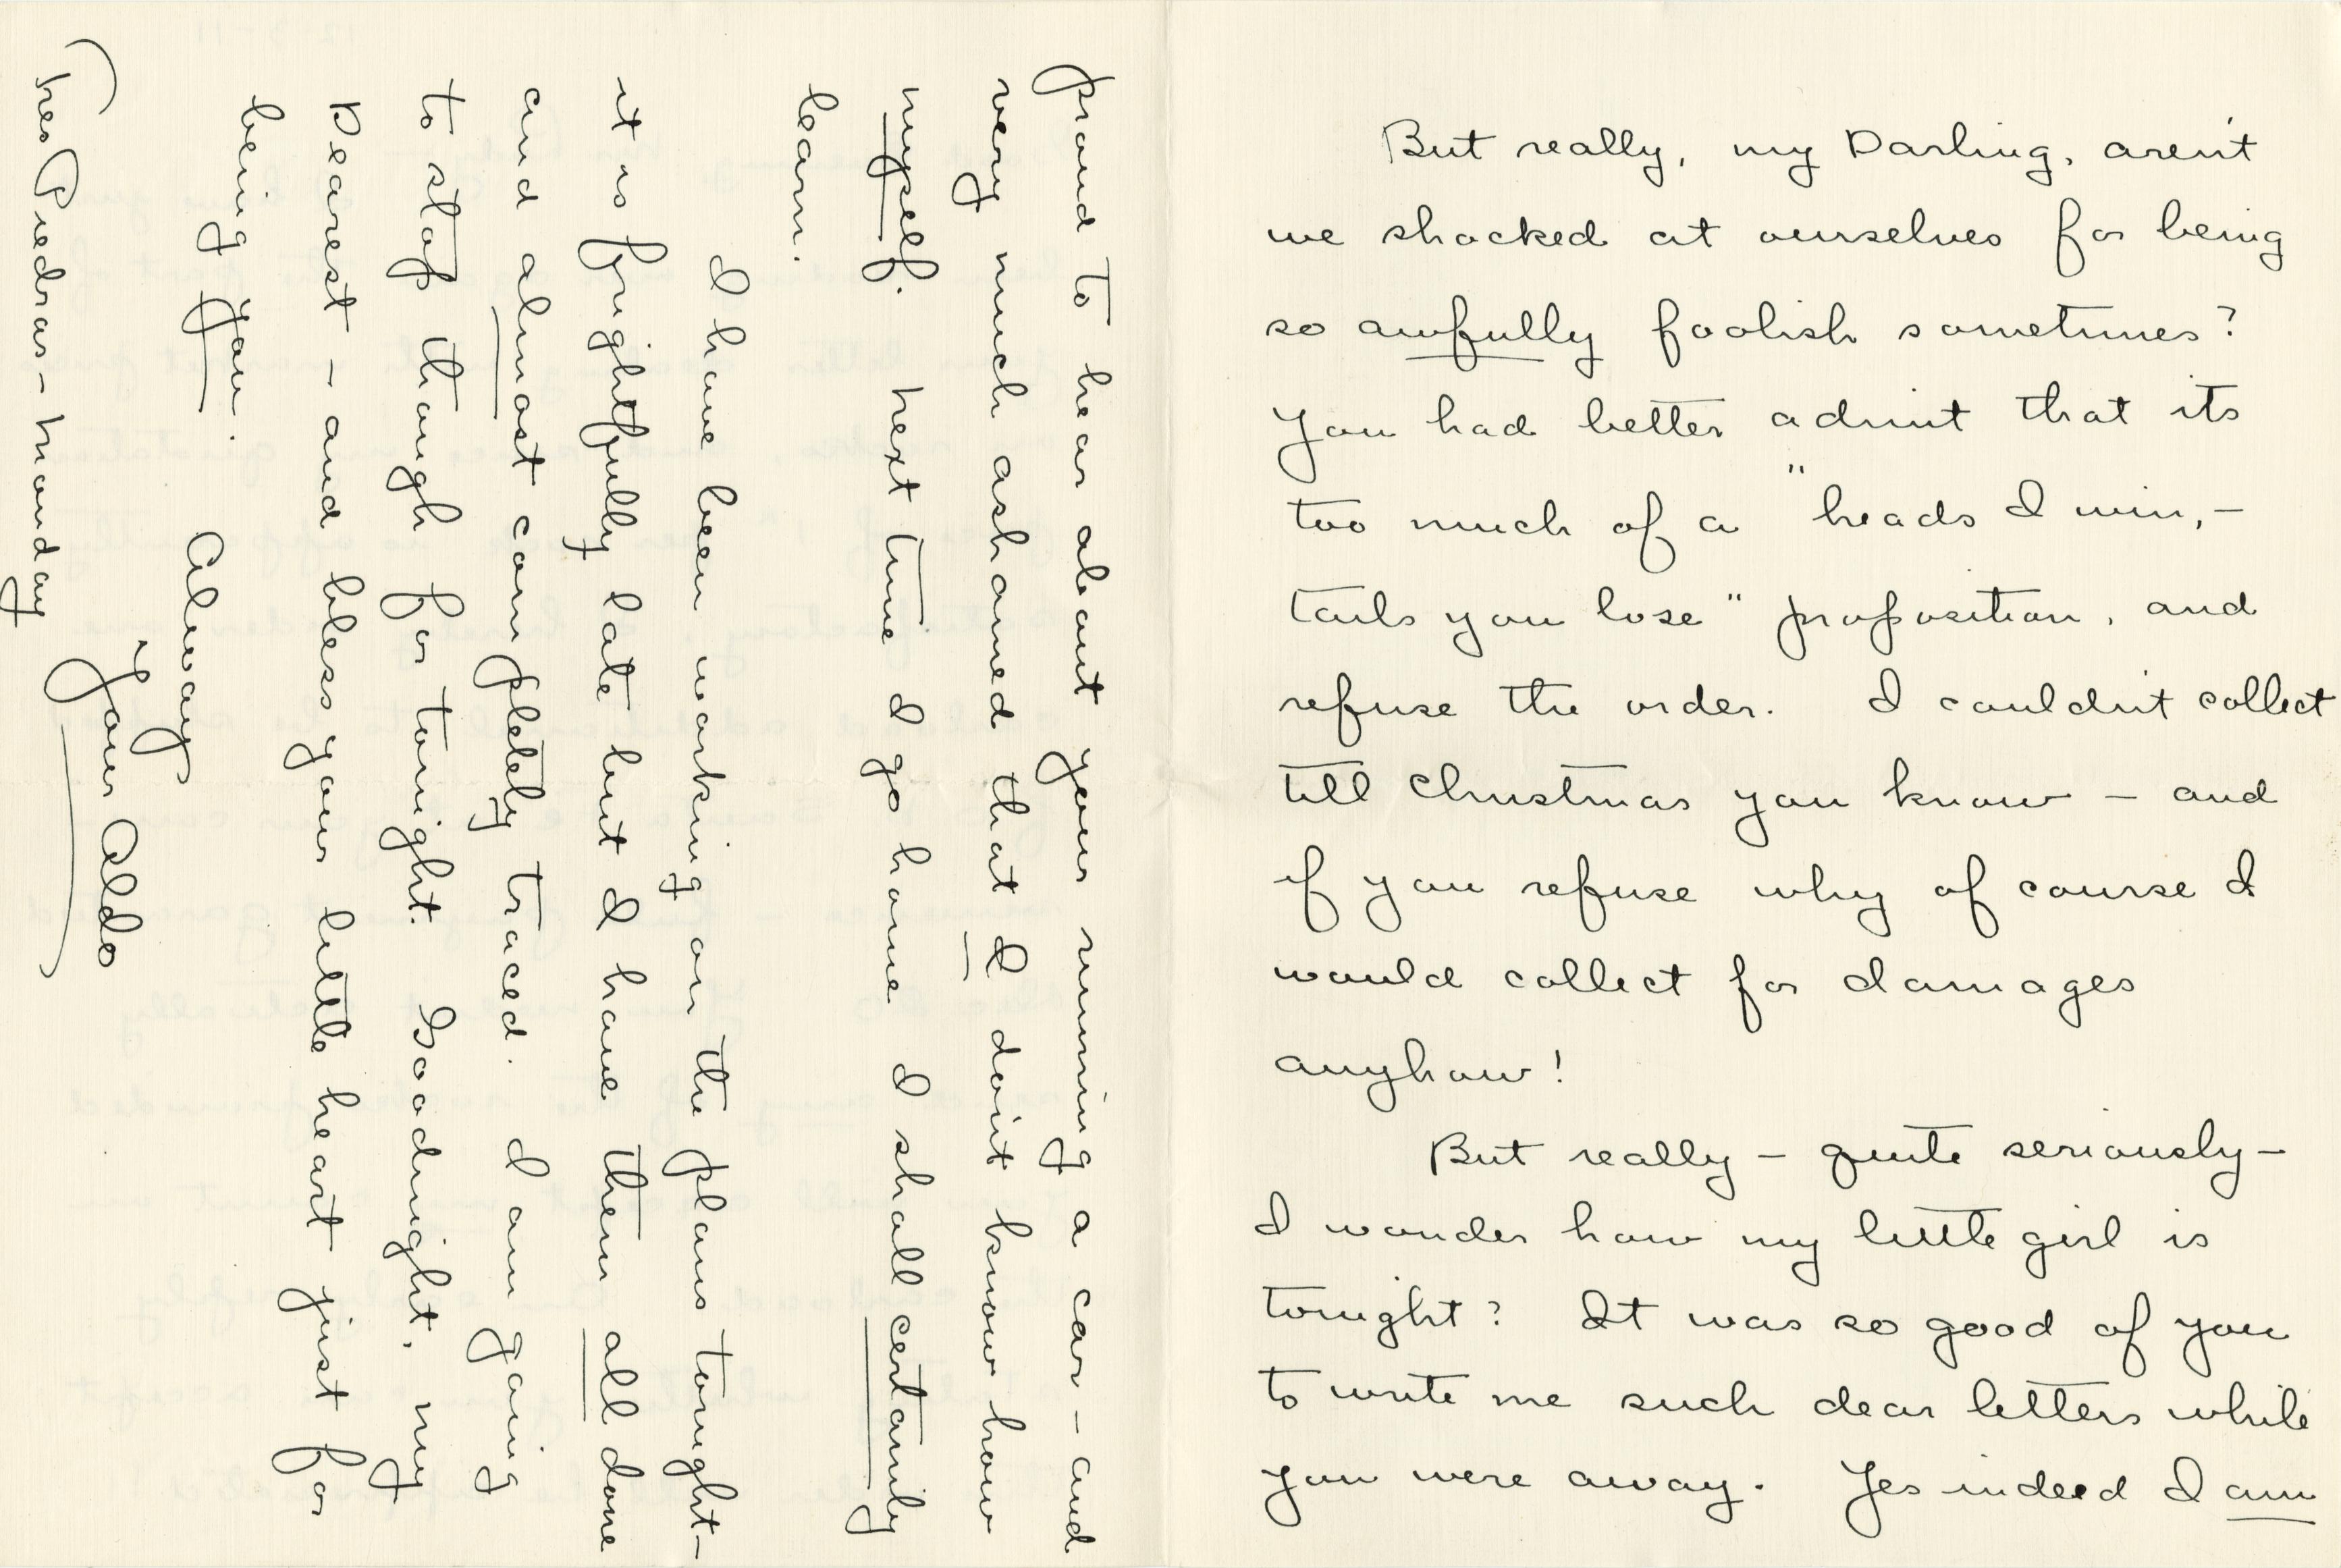 But really, my Darling, aren't
we shocked at ourselves for being
so awfully foolish sometimes?
You had better admit that its
too much of a "heads I win,-
tails you lose" proposition, and
refuse the order. I couldn't collect
till Christmas you know - and
if you refuse why of course I
would collect for damages
anyhow!
But really - quite seriously -
I wonder how my little girl is
tonight? It was so good of you
to write me such dear letters while
you were away. Yes indeed I am
proud to hear about your running a car - and
very much ashamed that I don't know how
myself. Next time I go home I shall certainly
learn.
I have been working on the plans tonight -
it is frightfully late but I have them all done
and almost completely traced. I am going
to stop though for tonight. Goodnight, my
Dearest - and bless your little heart just for
being you.
Always
Your Aldo
Tres Piedras - Monday